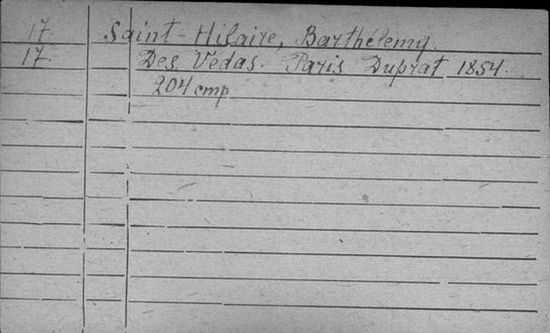 17 Saint-Hilaire, Barthélemy.
17. Des Védas. Paris Duprat 1854.
204 стр